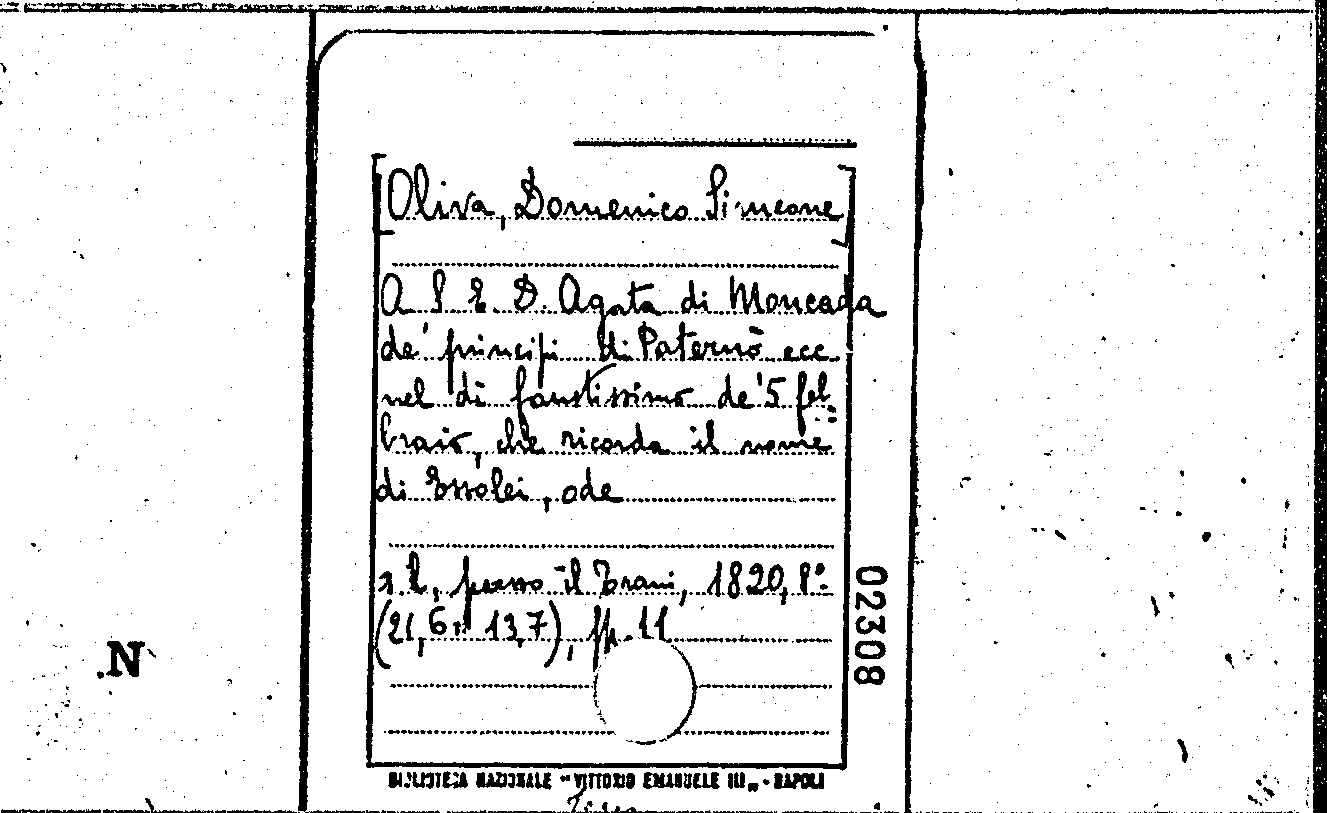 [Oliva, Domenico Simeone]
A S. E. D. Agata di Moncada
de' principi di Paternò ecc.
nel dì faustissimo de' 5 feb=
braio, che ricorda il nome
di Essolei, ode
s. l., presso il Trani, 1820, 8°
(21,6 x 13,7), pp. 11
02308
N
BIBLIOTECA NAZIONALE "VITTORIO EMANUELE III" - NAPOLI